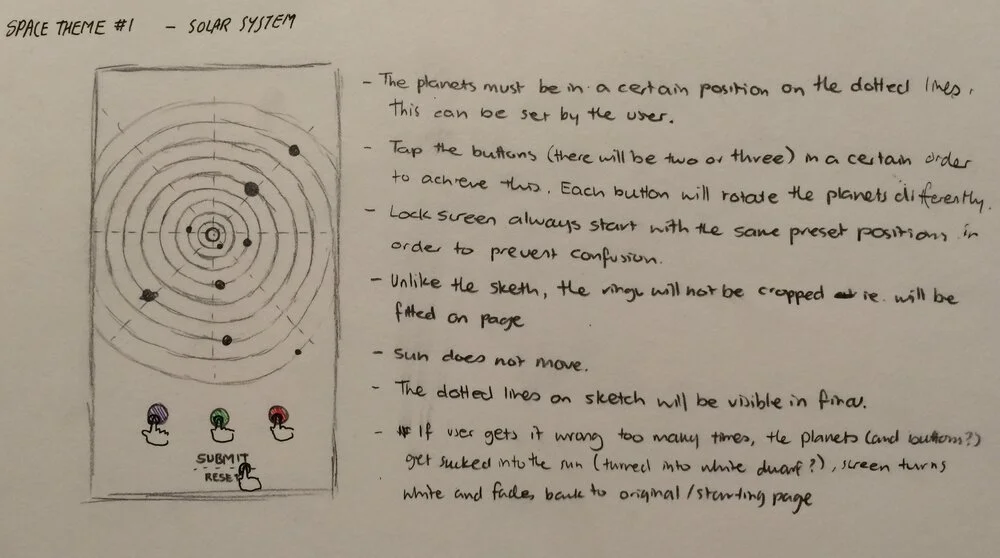 SPACE THEME #1 - SOLAR SYSTEM
- The planets must be in a certain position on the dotted lines.
This can be set by the user.
- Tap the buttons (there will be two or three) in a certain order
to achieve this. Each button will rotate the planets differently.
- Lock screen always start with the same preset positions in
order to prevent confusion.
- Unlike the sketh, the rings will not be cropped ie. will be
fitted on page
- Sun does not move.
- The dotted lines on sketch will be visible in final.
- If user gets it wrong too many times, the planets (and buttons?)
get sucked into the sun (turned into white dwarf?), screen turns
white and fades back to original/starting page
SUBMIT
RESET